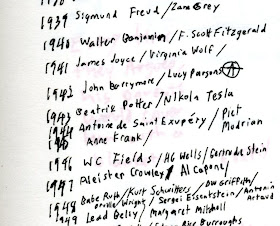 1939 Sigmund Freud / Zane Grey
1940 Walter Benjamin / F. Scott Fitzgerald
1941 James Joyce / Virginia Wolf /
1942 John Barrymore / Lucy Parsons Ⓐ
1943 Beatrix Potter / Nikola Tesla
1944 Antoine de Saint Exupéry / Piet Modrian
1945 Anne Frank /
1946 WC Fields / HG Wells / Gertrude Stein
1947 Aleister Crowley / Al Capone /
1948 Babe Ruth / Kurt Schwitters / DW Griffith /
Orville Wright / Sergei Eissenstein / Antonin Artaud
1949 Lead Belly / Margaret Mitchell
Rice Burroughs